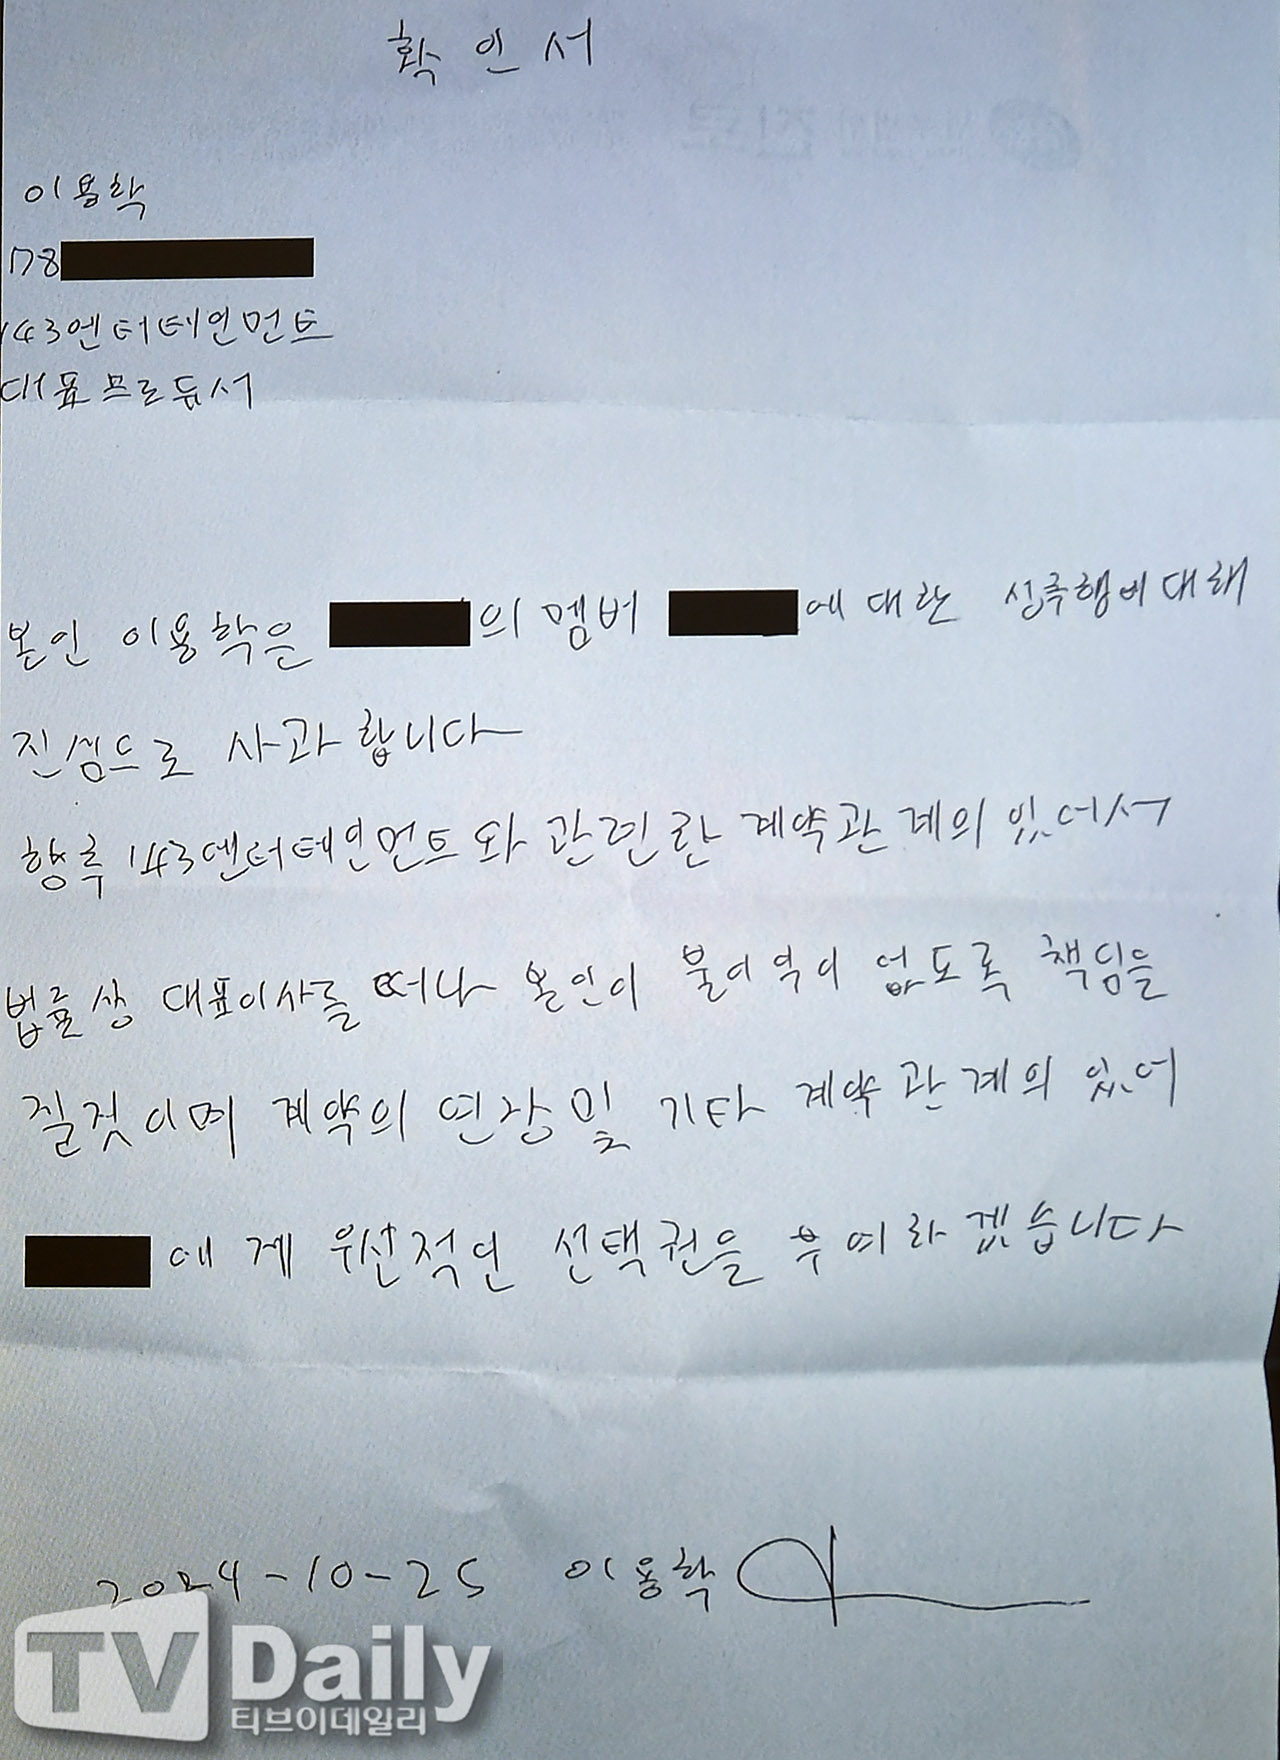 확인서
이용학
78
143엔터테인먼트
대표프로듀서
본인 이용학은 의 멤버 에 대한 성추행에대해
진심으로 사과합니다
향후 143엔터테인먼트와 관련한 계약관계의 있어서
법률상 대표이사를 떠나 본인이 불이익이 없도록 책임을
질것이며 계약의 연장및 기타 계약관계의 있어
에게 우선적인 선택권을 부여하겠습니다
2024-10-25 이용학
TV Daily
티브이데일리